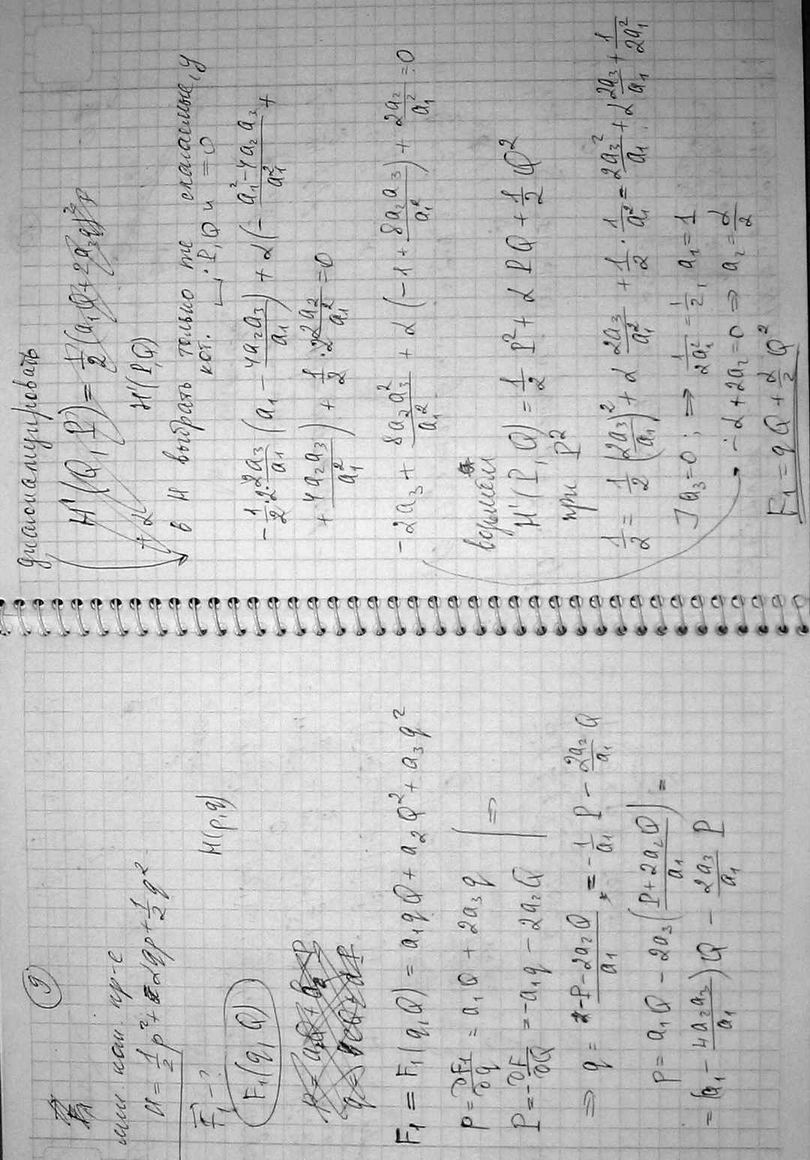 ⑨
лин кан пр-е
H = 1/2 p² + αqp + 1/2 q²
F₁ - ?
H(p,q)
F₁(q,Q)
F₁ = F₁(q,Q) = a₁qQ + a₂Q² + a₃q²
p = ∂F₁/∂q = a₁Q + 2a₃q
P = -∂F/∂Q = -a₁q - 2a₂Q | ⇒
⇒ q = (-P-2a₂Q)/a₁ = -1/a₁ P - 2a₂/a₁ Q
p = a₁Q - 2a₃((P+2a₂Q)/a₁) =
= (a₁ - 4a₂a₃/a₁)Q - 2a₃/a₁ P
диагонализировать
H'(Q,P) =
H'(P,Q)
в H выбрать только те слагаемые, у
кот. P,Q и = 0
-1/2·2·2a₃/a₁ (a₁ - 4a₂a₃/a₁) + α(-(a₁²-4a₂a₃)/a₁² +
+ 4a₂a₃/a₁²) + 1/2·2 2a₂/a₁² = 0
-2a₃ + 8a₂a₃²/a₁² + α(-1 + 8a₂a₃/a₁²) + 2a₂/a₁² = 0
возьмем
H'(P,Q) = 1/2 P² + αPQ + 1/2 Q²
при P²
1/2 = 1/2 (2a₃/a₁)² + α 2a₃/a₁² + 1/2 · 1/a₁² = 2a₃²/a₁ + α 2a₃/a₁ + 1/2a₁²
] a₃=0; ⇒ 1/2a₁² = 1/2, a₁ = 1
-α + 2a₂ = 0 ⇒ a₂ = α/2
F₁ = qQ + α/2 Q²